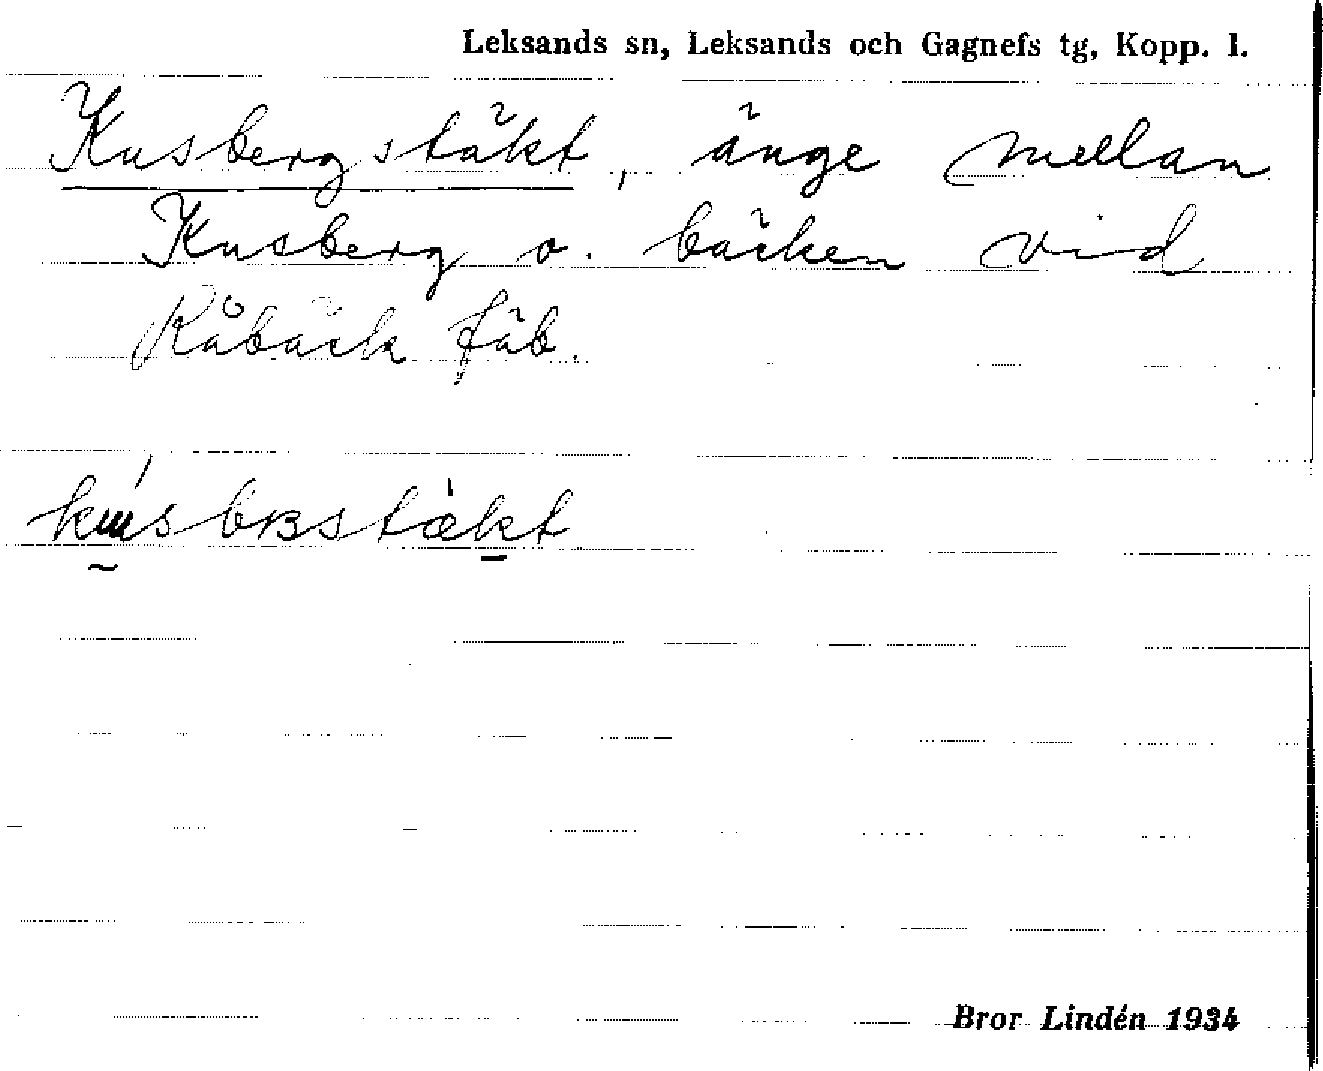 Leksands sn, Leksands och Gagnefs tg, Kopp. l.
Kusbergstäkt, änge mellan
Kusberg o. bäcken vid
Råbäck fäb.
Bror Lindén 1934